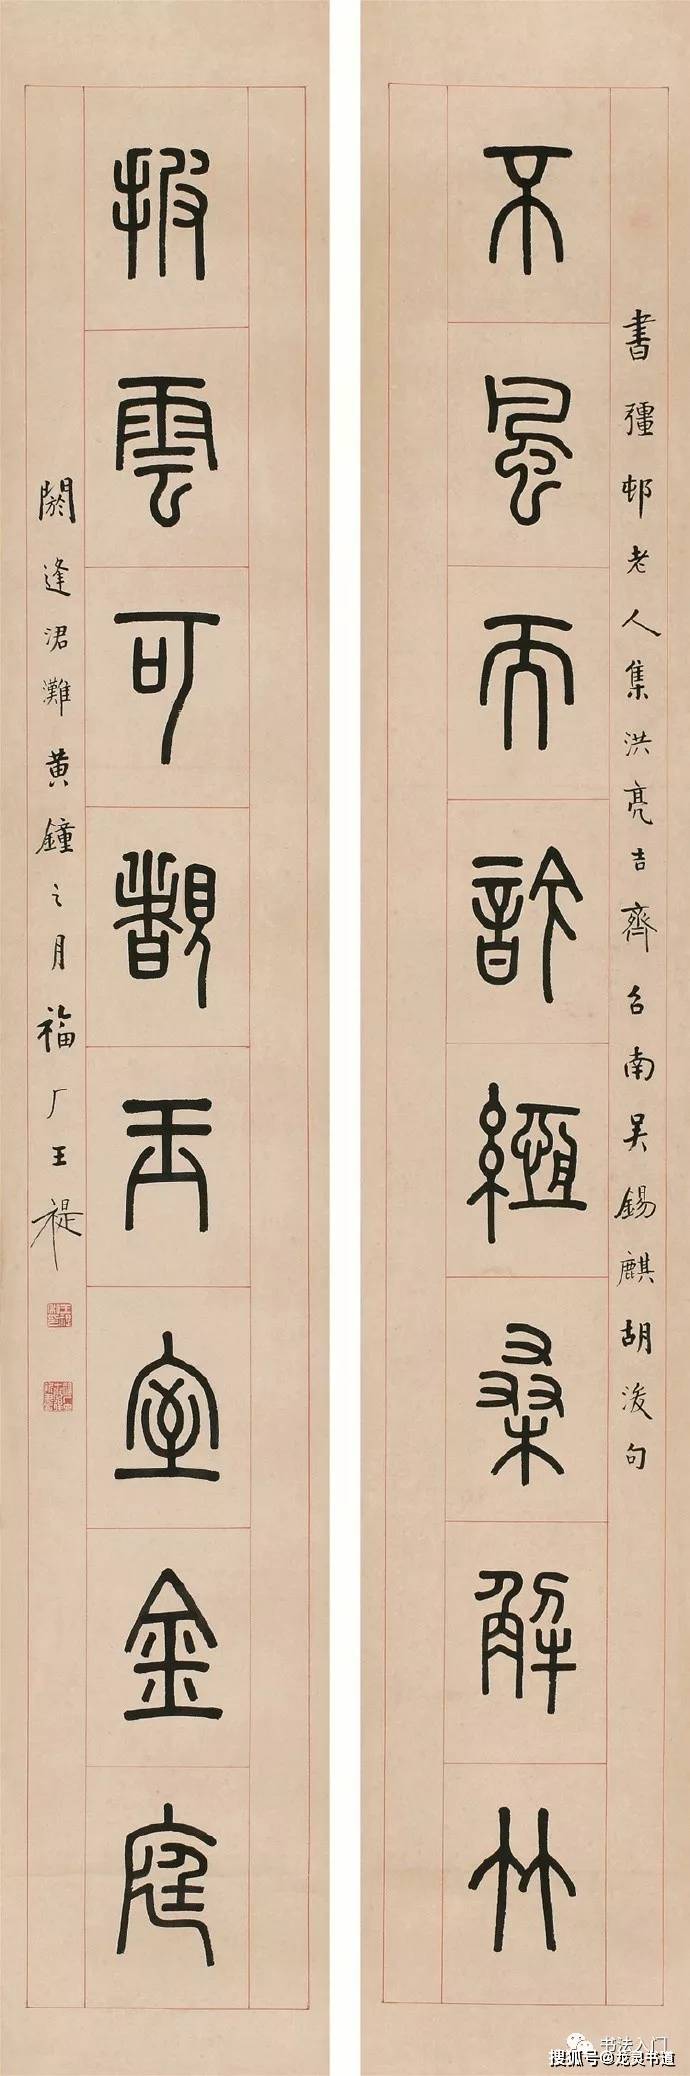 書彊邨老人集洪亮吉齊召南吳錫麒胡浚句
不風而桑解竹
披雲可覩玉室金庭
閼逢涒灘黄鐘之月福厂王禔
书法入门
搜狐号@龙灵书道